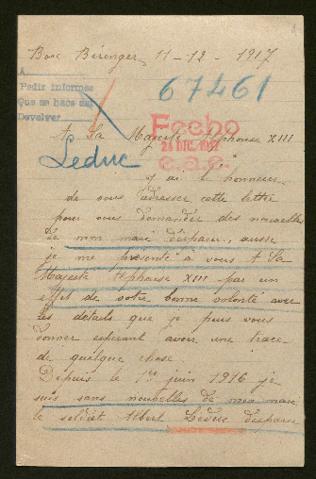 Bosc Bérenger, 11-12-1917
A
Pedir informes
Que se hace eso
Devolver
67461
A Sa Majesté Alphonse XIII
Fecho
24 DIC. 1917
Leduc
c.a.c.
J'ai l'honneur
de vous adresser cette lettre
pour vous demander des nouvelles
de mon mari disparu, aussi
je me présente à vous A Sa
Majesté Alphonse XIII par un
effet de votre bonne volonté avec
les détails que je puis vous
donner espérant avoir une trace
de quelque chose
Depuis le 1er juin 1916 je
suis sans nouvelles de mon mari
le soldat Albert Leduc disparu